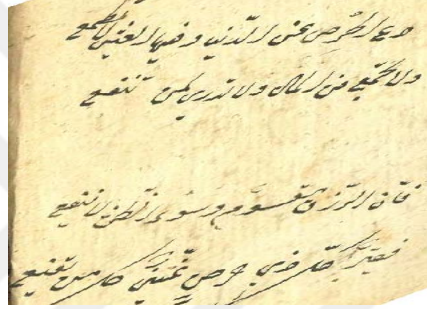 دع الحرص عن الدنيا وفيها العيش لا تطمع
ولا تجمع من المال ولا تدري لمن تجمع
فان الرزق مقسوم وسوء الظن لا ينفع
فقير كل ذي حرص غني كل من يقنع